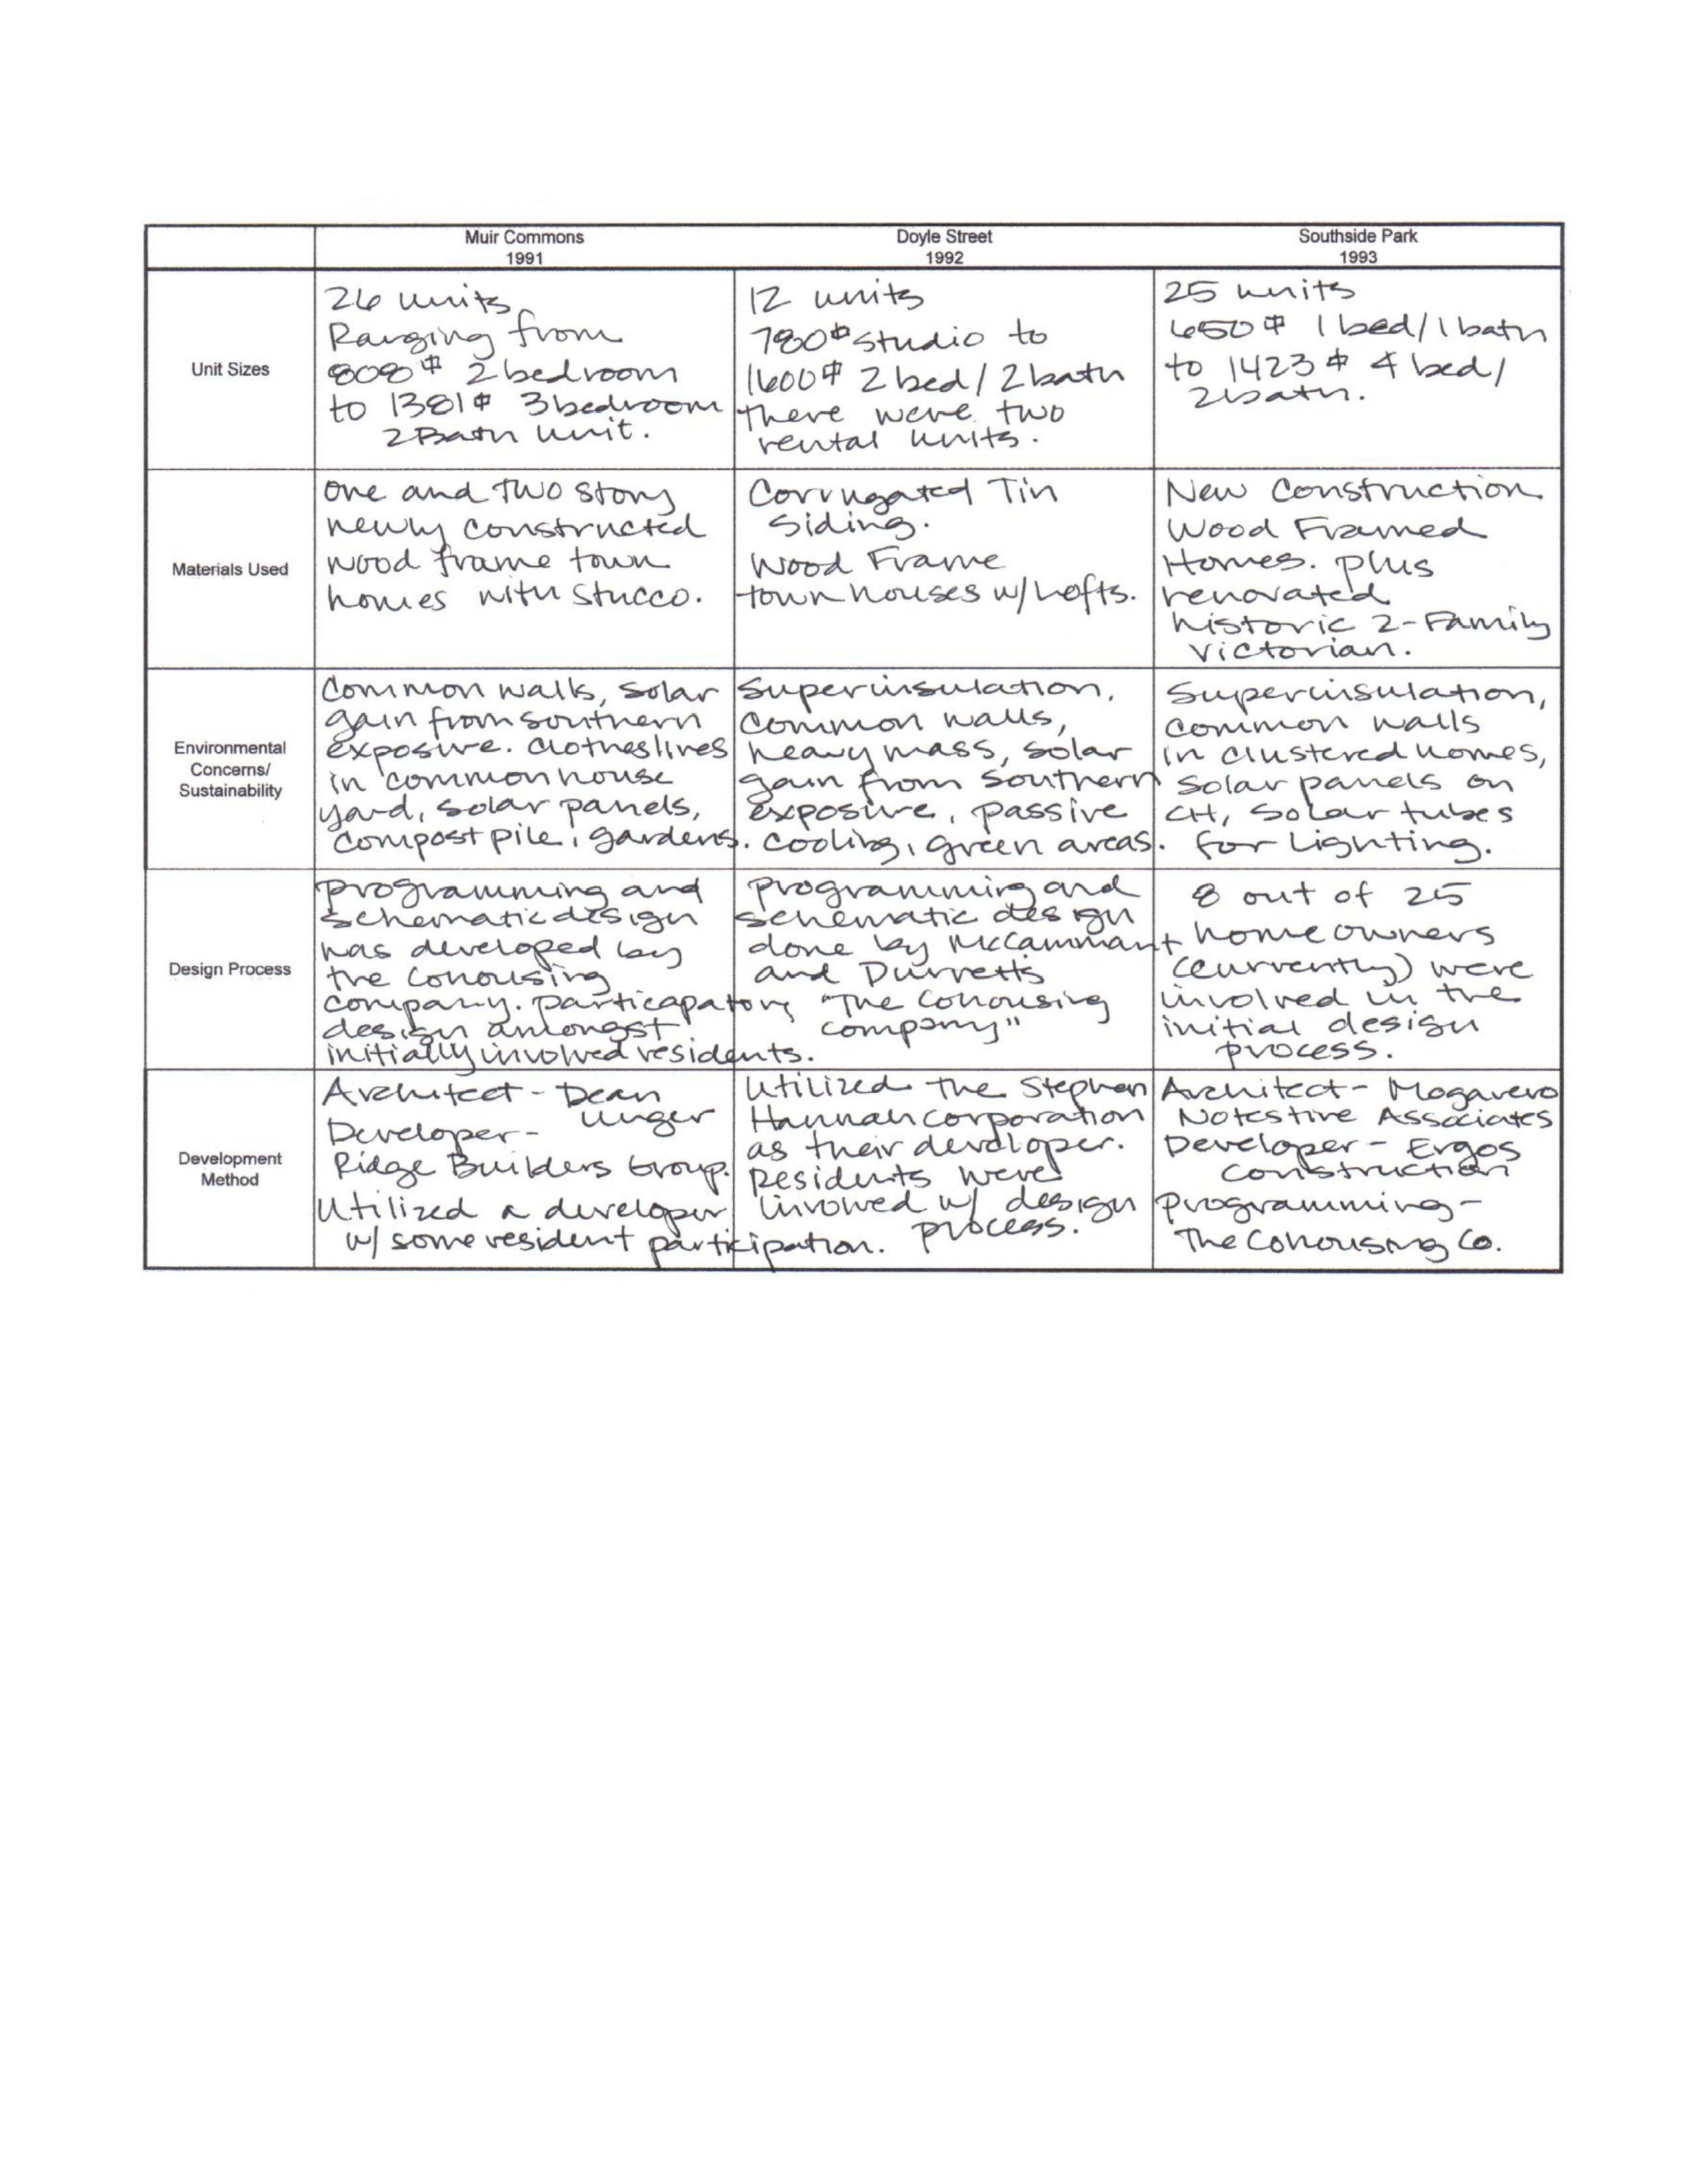 Muir Commons
1991
Doyle Street
1992
Southside Park
1993
Unit Sizes
26 units
Ranging from
808⌗ 2 bedroom
to 1381⌗ 3 bedroom
2 Bath unit.
12 units
780⌗ studio to
1600⌗ 2 bed/2 bath
there were two
rental units.
25 units
650⌗ 1 bed/1 bath
to 1423⌗ 4 bed/
2 bath.
Materials Used
One and Two story
newly constructed
wood frame town
homes with stucco.
Corrugated Tin
Siding.
Wood Frame
townhouses w/ Lofts.
New Construction
Wood Framed
Homes. plus
renovated
historic 2-Family
Victorian.
Environmental
Concerns/
Sustainability
Common walls, solar
gain from southern
exposure. clotheslines
in common house
yard, solar panels,
compost pile, gardens.
Superinsulation,
common walls,
heavy mass, solar
gain from southern
exposure, passive
cooling, green areas.
Superinsulation,
common walls
in clustered homes,
solar panels on
CH, solar tubes
for Lighting.
Design Process
programming and
schematic design
was developed by
the Cohousing
company. particapatory
design amongst
initially involved residents.
programming and
schematic design
done by McCammant
and Durretts
"The Cohousing
company"
8 out of 25
homeowners
(currently) were
involved in the
initial design
process.
Development
Method
Architect - Dean
Unger
Developer -
Ridge Builders Group.
Utilized a developer
w/ some resident participation.
Utilized the Stephen
Hannah corporation
as their developer.
Residents were
involved w/ design
process.
Architect - Mogavero
Notestine Associates
Developer - Ergos
Construction
programming -
The Cohousing Co.